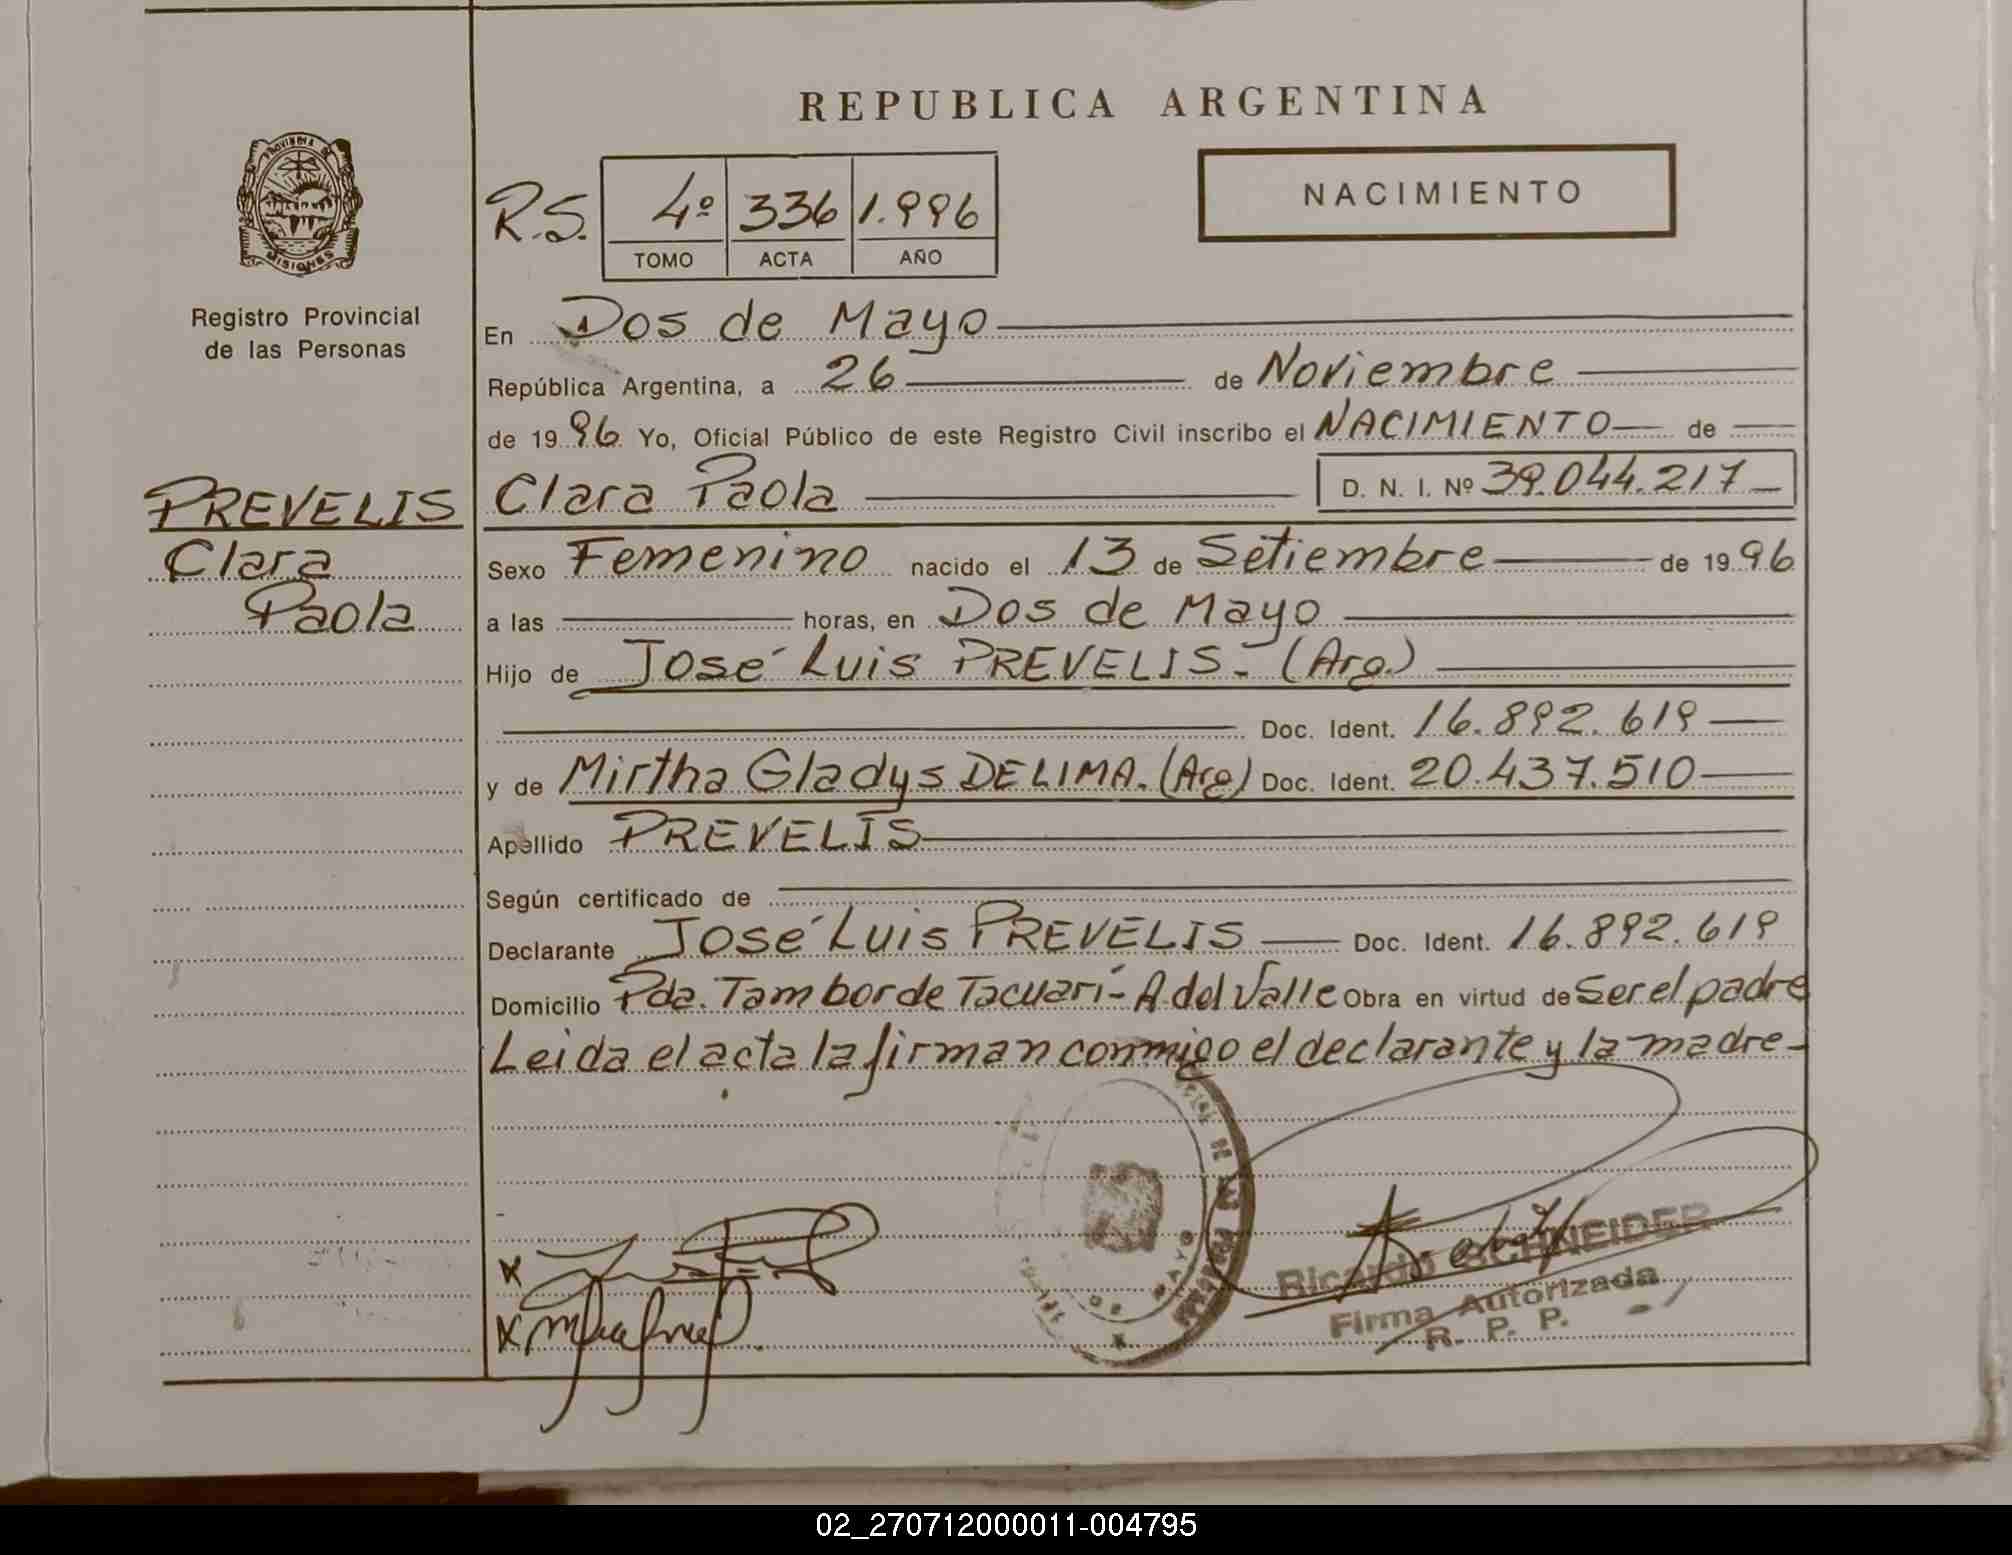 REPUBLICA ARGENTINA
PROVINCIA DE
MISIONES
Registro Provincial
de las Personas
NACIMIENTO
R.S. 4º 336 1.996
TOMO ACTA AÑO
En Dos de Mayo
República Argentina, a 26 de Noviembre
de 1996 Yo, Oficial Público de este Registro Civil inscribo el NACIMIENTO de
PREVELIS
Clara
Paola
Clara Paola D. N. I. Nº 39.044.217
Sexo Femenino nacido el 13 de Setiembre de 1996
a las horas, en Dos de Mayo
Hijo de José Luis PREVELIS.- (Arg.)
Doc. Ident. 16.892.619
y de Mirtha Gladys DELIMA. (Arg) Doc. Ident. 20.437.510
Apellido PREVELIS
Según certificado de
Declarante José Luis PREVELIS Doc. Ident. 16.892.619
Domicilio Pda. Tambor de Tacuarí- A. del Valle Obra en virtud de Ser el padre
Leida el acta la firman conmigo el declarante y la madre-
DE MAYO
Ricardo SCHNEIDER
Firma Autorizada
R. P. P.
02_270712000011-004795